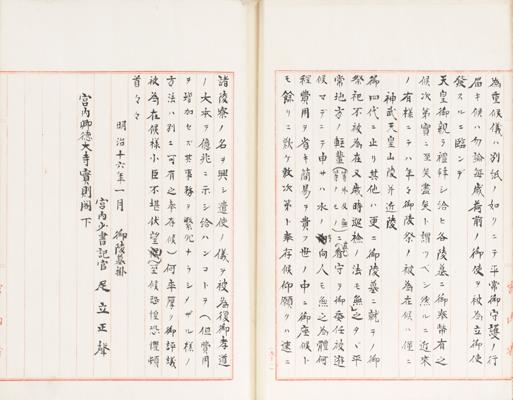 為重候儀ハ別紙ノ如クニテ平常御守護ノ行
届キ候ハ勿論毎歳荷前ノ御使ヲ被為立御使
發スルニ臨ンデ
天皇御親ラ禮拜シ給ヒ各陵墓ニ御奉幣有之
候次第實ニ至矣盡矣ト謂フベシ然ルニ近來
ノ有様ニテハ年々御陵祭ノ被為在候ハ僅ニ
神武天皇山陵并近陵
御四代ニ止リ其他ハ更ニ御陵墓ニ就テノ御
祭祀不被為在又歳時巡檢ノ法モ無之タヾ平
常地方ノ輕輩ニ看守ヲ御委任被遊
候マデニテ申サハ氷ノ向人モ無之為體何
經費用ヲ省キ簡易ヲ貴フ世ノ中ニ御座候ト
モ餘リニ歎ケ敷次第ト奉存候仰願クハ速ニ
諸陵寮ノ名ヲ興シ遣使ノ儀ヲ被為復御孝道
ノ大本ヲ億兆ニ示シ給ハンコトヲ(但費用
ヲ増加セズ其事務ヲ繁冗ナラシメザル様ノ
方法ハ別ニ可有之奉存候)何卒厚ク御評議
被為在候様小臣不堪伏望之至候恐惶恐懼頓
首々々
明治十六年一月 御陵墓掛
宮内少書記官 足立正聲
宮内卿徳大寺實則閣下